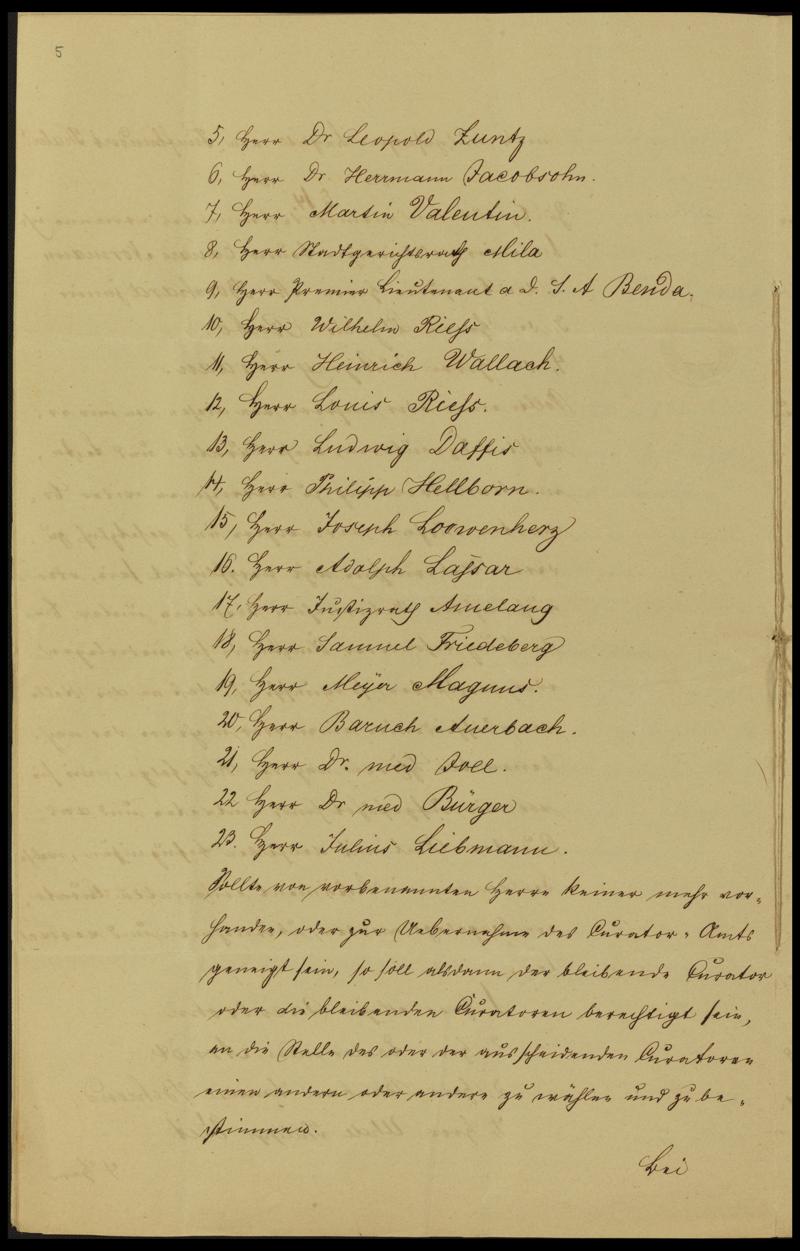 5
5, Herr Dr Leopold Zuntz
6, Herr Dr Herrmann Jacobsohn.
7, Herr Martin Valentin.
8, Herr Stadtgerichtsrath Mila
9, Herr Premier Lieutenant a D. S. A Benda.
10, Herr Wilhelm Riess
11, Herr Heinrich Wallach.
12, Herr Louis Riess.
13, Herr Ludwig Daffis
14, Herr Philipp Hellborn.
15, Herr Joseph Loewenherz
16. Herr Adolph Lassar
17, Herr Justizrath Amelang
18, Herr Samuel Friedeberg
19, Herr Meyer Magnus.
20, Herr Baruch Auerbach.
21, Herr Dr. med Joel.
22 Herr Dr med Bürger
23. Herr Julius Liebmann.
Sollte von vorbenannten Herrn keiner mehr vor-
handen, oder zur Uebernahme des Curator-Amts
geneigt sein, so soll alsdann der bleibende Curator
oder die bleibenden Curatoren berechtigt sein,
an die Stelle des oder der ausscheidenden Curatoren
einen andern oder andere zu wählen und zu be-
stimmen.
Bei